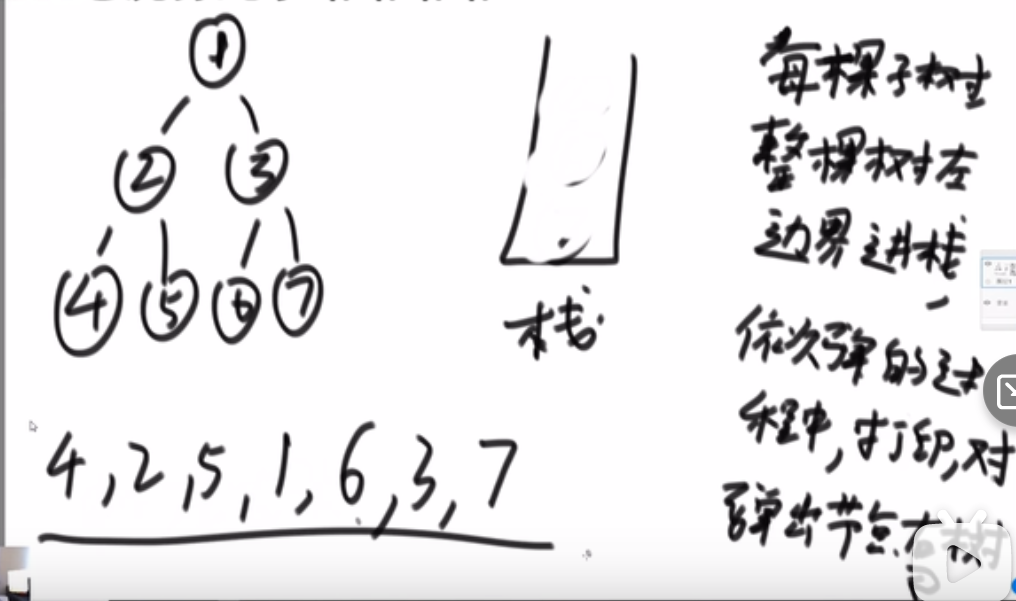 1
2 3
4 5 6 7
栈
4,2,5,1,6,3,7
每棵子树
整棵树左
边界进栈,
依次弹的过
程中,打印,对
弹出节点